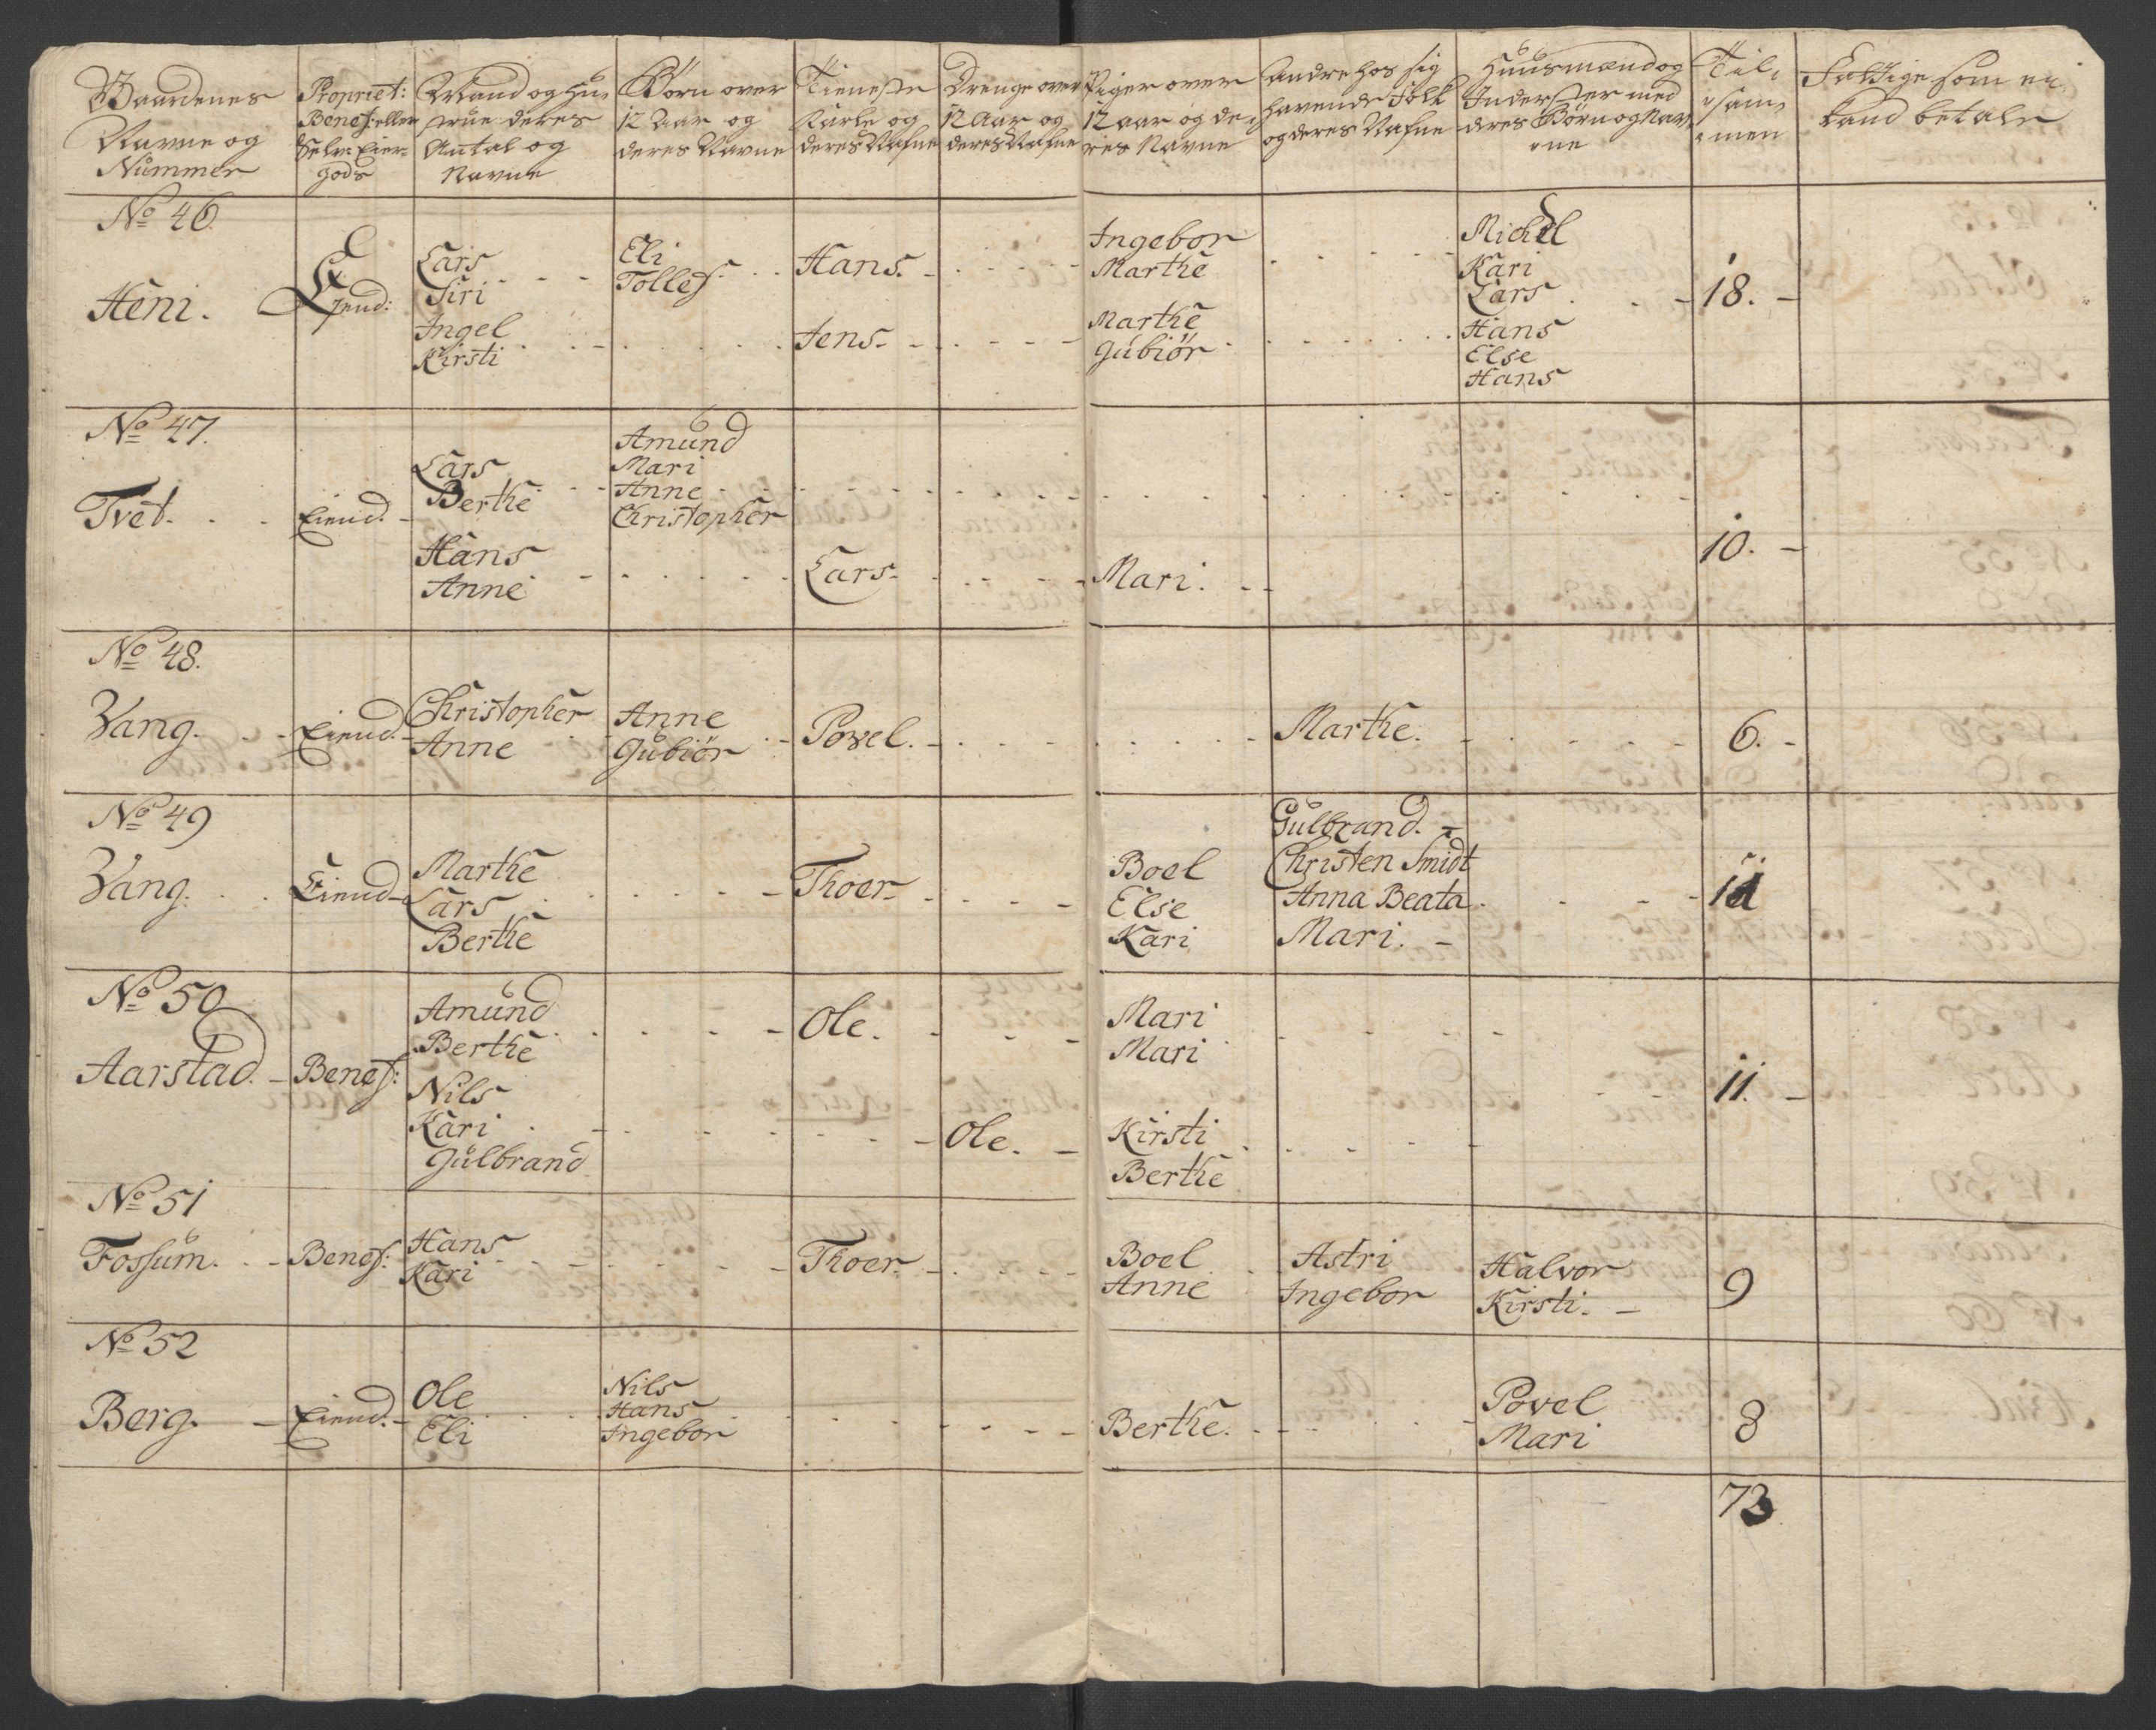 Gaardenes
Navne og
Nummer
Propriet:
Benef: eller
Selv-Eier-
gods
Mand og Hu-
strue deres
Antal og
Navne
Börn over
12 Aar og
deres Navne
Tieneste
Karle og
deres Nafne
Drenge over
12 Aar og
deres Nafne
Piger over
12 aar og de-
res Navne
Andre hos sig
havende Folk
og deres Nafne
Huusmænd og
Inderster med
deres Börn og Nav-
ne
Til-
sam-
men
Fattige som ei
kand betale
No 46.
Heni.
Ejend:
Lars
Siri
Ingel
Kirsti
Eli
Tollef
Hans.
Jens.
Ingebor
Marthe
Marthe
Gubiör
Michel
Kari
Lars
Hans
Else
Hans
18.
No 47.
Tvet.
Eiend.
Lars
Berthe
Hans
Anne
Amund
Mari
Anne
Christopher
Lars.
Mari.
10.
No 48.
Vang.
Eiend.
Christopher
Anne
Anne
Gubiör
Povel.
Marthe.
6.
No 49
Vang.
Eiend
Marthe
Lars
Berthe
Thoer
Boel
Else
Kari
Gulbrand.
Christen Smidt
Anna Beata
Mari.
11
No 50
Aarstad.
Benef:
Amund
Berthe
Nils
Kari
Gulbrand
Ole.
Ole.
Mari
Mari
Kirsti
Berthe
11.
No 51
Fossum.
Benef:
Hans
Kari
Thoer
Boel
Anne
Astri
Ingebor
Halvor
Kirsti.
9
No 52
Berg.
Eiend.
Ole
Eli
Nils
Hans
Ingebor
Berthe.
Povel
Mari
8
73